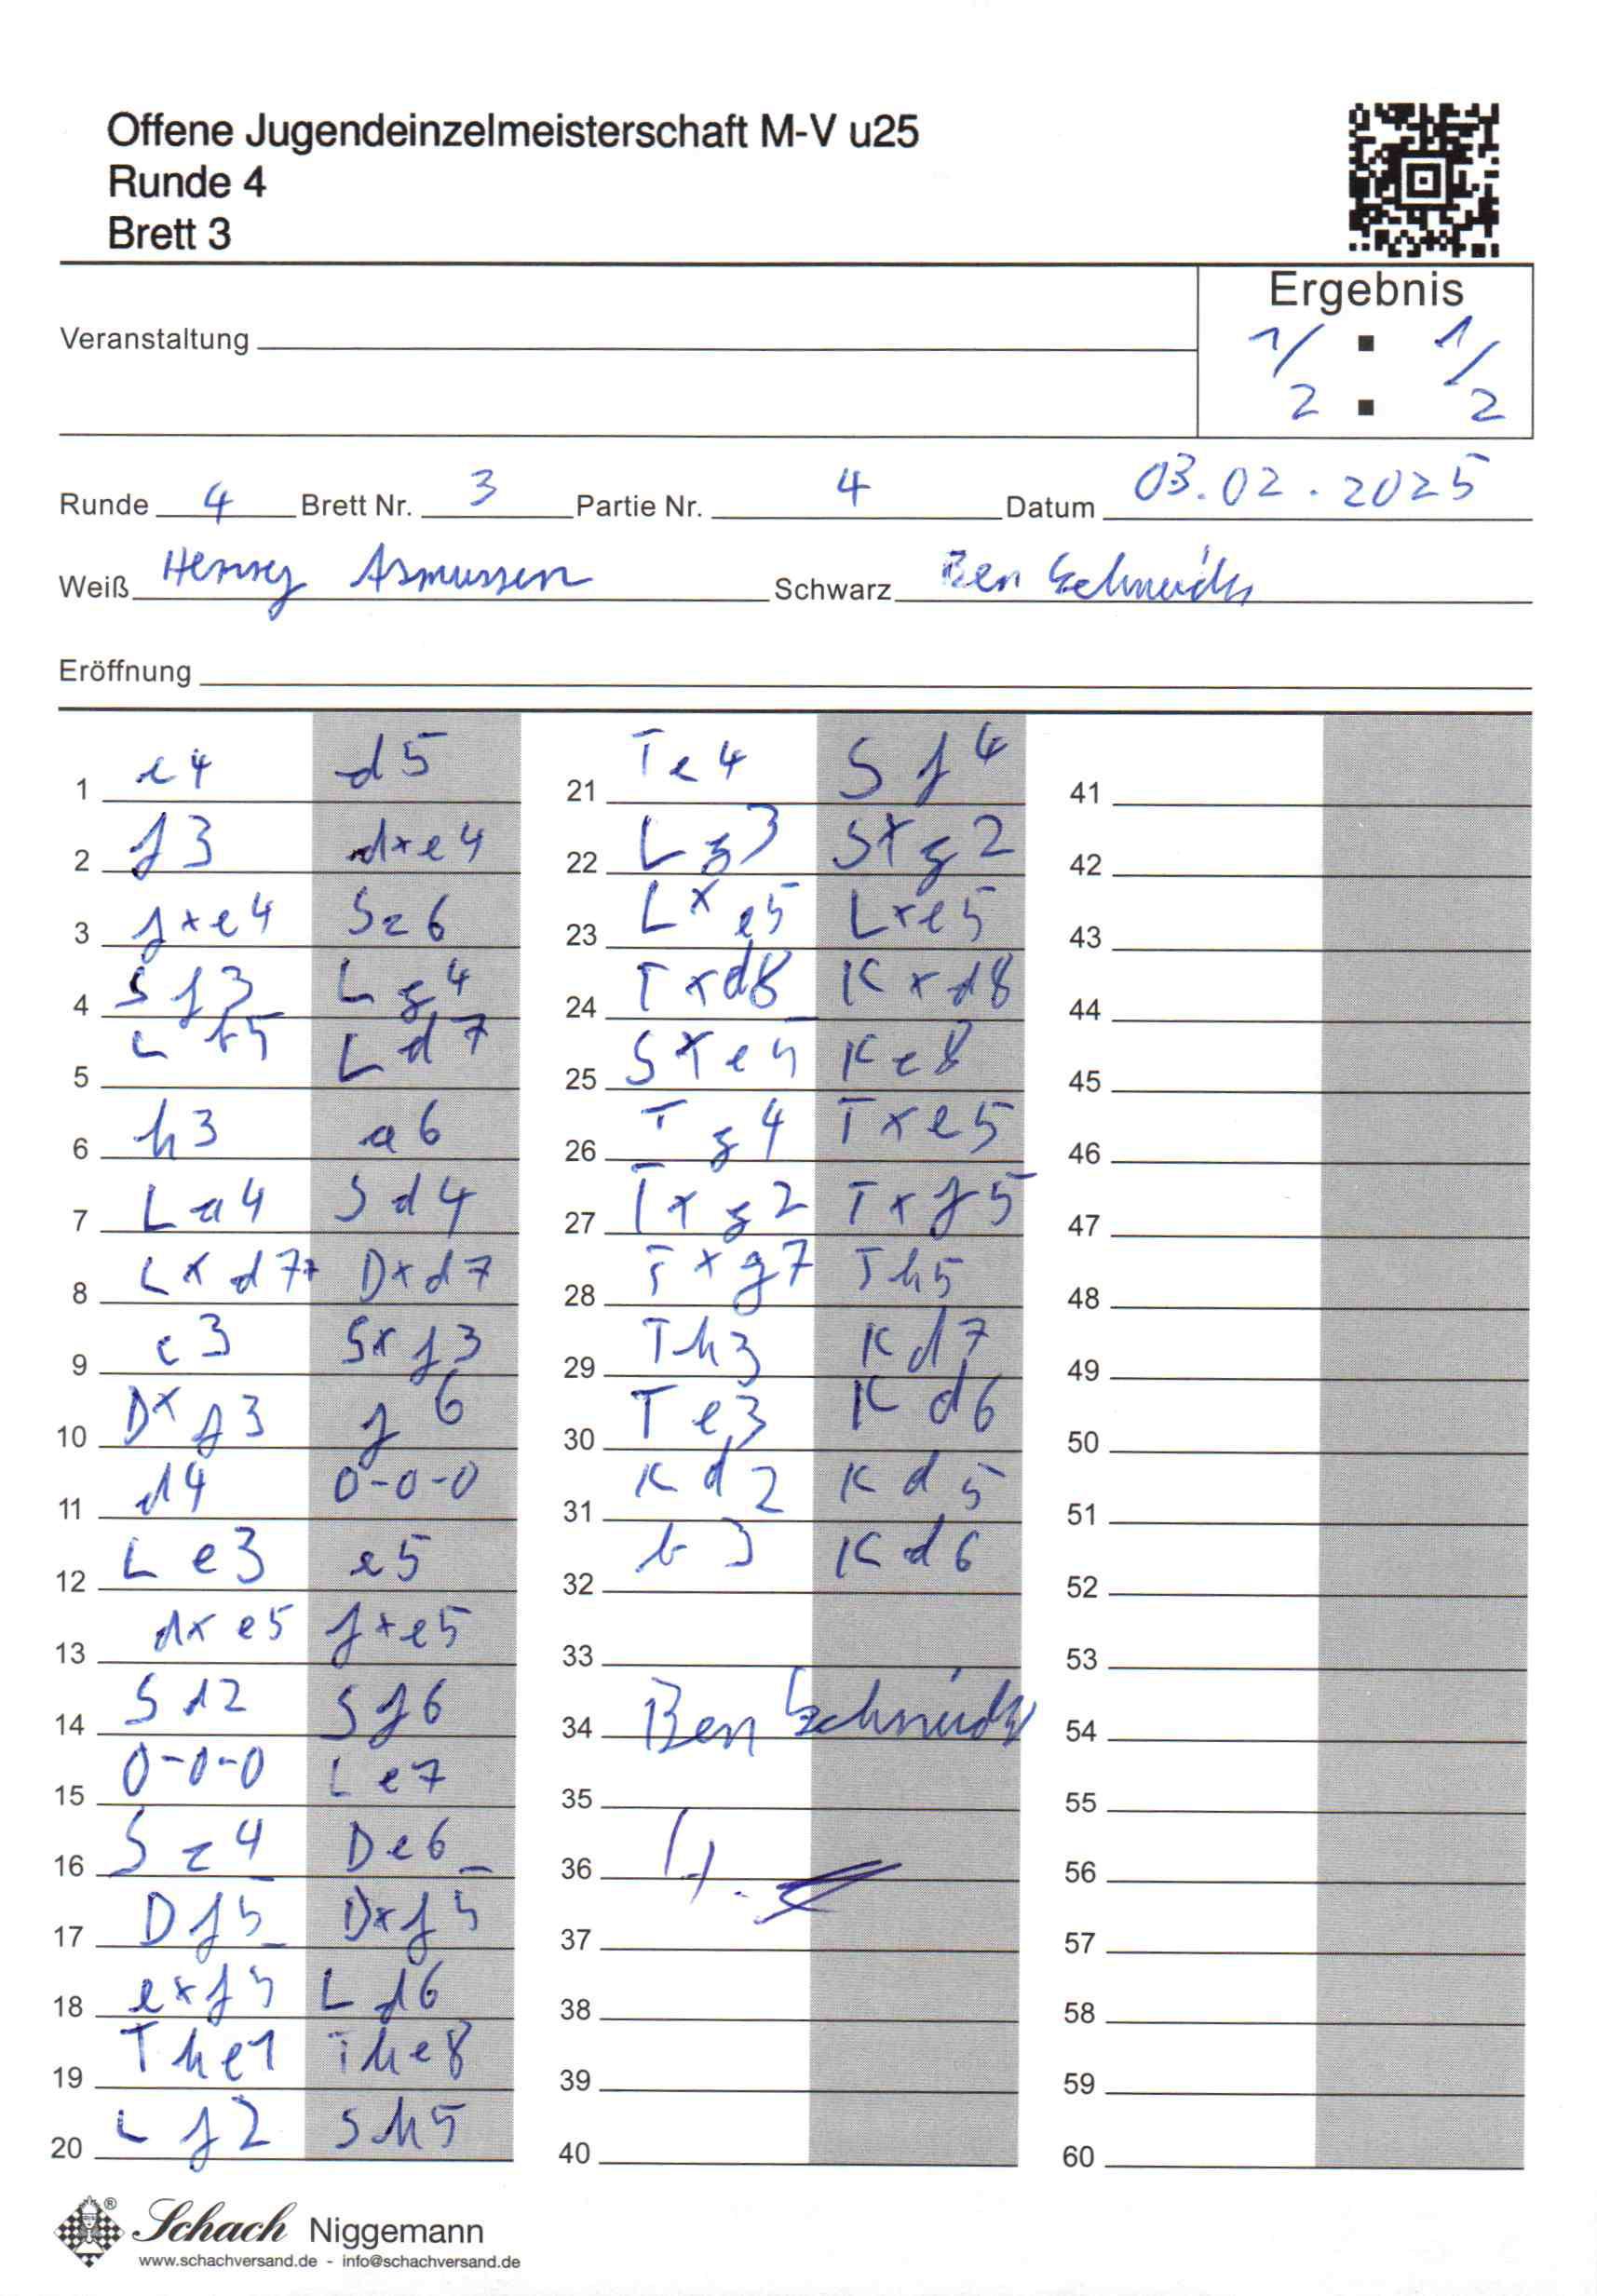 Offene Jugendeinzelmeisterschaft M-V u25
Runde 4
Brett 3
Ergebnis
1/2 : 1/2
Veranstaltung
Runde 4 Brett Nr. 3 Partie Nr. 4 Datum 03.02.2025
Weiß Henry Asmussen Schwarz Ben Schneider
Eröffnung
1 e4 d5
2 f3 dxe4
3 fxe4 Sc6
4 Sf3 Lg4
5 Lb5 Ld7
6 h3 a6
7 La4 Sd4
8 Lxd7+ Dxd7
9 c3 Sxf3
10 Dxf3 f6
11 d4 0-0-0
12 Le3 e5
13 dxe5 fxe5
14 Sd2 Sf6
15 0-0-0 Le7
16 Sc4 De6
17 Df5 Dxf5
18 exf5 Ld6
19 The1 The8
20 Lf2 Sh5
21 Te4 Sf4
22 Lg3 Sxg2
23 Lxe5 Lxe5
24 Txd8 Kxd8
25 Sxe5 Ke8
26 Tg4 Txe5
27 Txg2 Txf5
28 Txg7 Th5
29 Th3 Kd7
30 Te3 Kd6
31 Kd2 Kd5
32 b3 Kd6
33
34 Ben Schneider
35
36 H.
37
38
39
40
41
42
43
44
45
46
47
48
49
50
51
52
53
54
55
56
57
58
59
60
Schach Niggemann
www.schachversand.de - info@schachversand.de